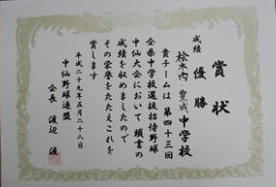 賞状
成績
優勝
桧木内 中学校
貴チームは第四十三回
全県中学校選抜招待野球
中仙大会において頭書の
成績を収めましたので
その栄誉をたたえこれを
賞します
平成二十九年五月二十八日
中仙野球連盟
会長 渡辺